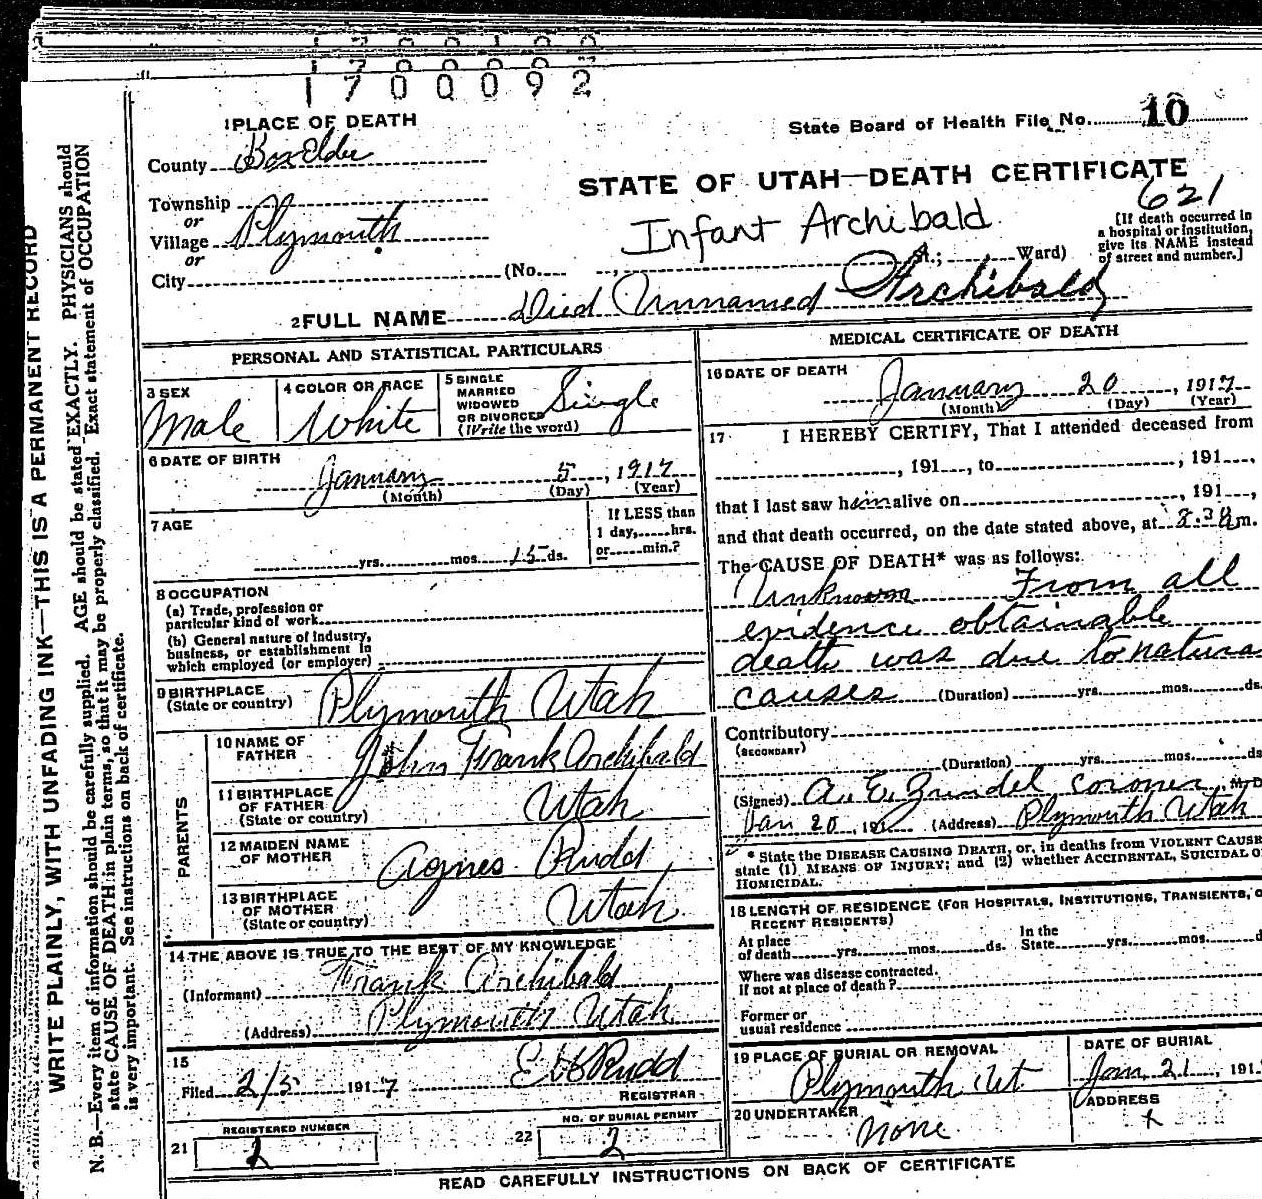 1700092
1 PLACE OF DEATH
State Board of Health File No. 10
County Box Elder
STATE OF UTAH—DEATH CERTIFICATE
621
Township
or
Village Plymouth
or
City
Infant Archibald
(No. St.; Ward)
[If death occurred in
a hospital or institution,
give its NAME instead
of street and number.]
2 FULL NAME Died Unnamed Archibald
PERSONAL AND STATISTICAL PARTICULARS
3 SEX
Male
4 COLOR OR RACE
White
5 SINGLE
MARRIED
WIDOWED
OR DIVORCED
(Write the word)
Single
6 DATE OF BIRTH
January 5, 1917
(Month) (Day) (Year)
7 AGE
yrs. mos. 15 ds.
If LESS than
1 day, hrs.
or min.?
8 OCCUPATION
(a) Trade, profession or
particular kind of work
(b) General nature of industry,
business, or establishment in
which employed (or employer)
9 BIRTHPLACE
(State or country)
Plymouth Utah
PARENTS
10 NAME OF
FATHER
John Frank Archibald
11 BIRTHPLACE
OF FATHER
(State or country)
Utah
12 MAIDEN NAME
OF MOTHER
Agnes Rudd
13 BIRTHPLACE
OF MOTHER
(State or country)
Utah
14 THE ABOVE IS TRUE TO THE BEST OF MY KNOWLEDGE
(Informant) Frank Archibald
(Address) Plymouth Utah
15
Filed 2/5 1917 Rudd
REGISTRAR
21 REGISTERED NUMBER
2
22 NO. OF BURIAL PERMIT
2
MEDICAL CERTIFICATE OF DEATH
16 DATE OF DEATH
January 20, 1917
(Month) (Day) (Year)
17 I HEREBY CERTIFY, That I attended deceased from
, 191 , to , 191 ,
that I last saw him alive on , 191 ,
and that death occurred, on the date stated above, at m.
The CAUSE OF DEATH* was as follows:
Unknown From all
evidence obtainable
death was due to natural
causes (Duration) yrs. mos. ds.
Contributory
(SECONDARY)
(Duration) yrs. mos. ds
(Signed) A. E. Zundel coroner M. D.
Jan 20, 191 (Address) Plymouth Utah
* State the DISEASE CAUSING DEATH, or, in deaths from VIOLENT CAUSE
state (1) MEANS OF INJURY; and (2) whether ACCIDENTAL, SUICIDAL O
HOMICIDAL.
18 LENGTH OF RESIDENCE (FOR HOSPITALS, INSTITUTIONS, TRANSIENTS, O
RECENT RESIDENTS)
At place
of death yrs. mos. ds.
In the
State yrs. mos. d
Where was disease contracted.
if not at place of death?
Former or
usual residence
19 PLACE OF BURIAL OR REMOVAL
Plymouth Ut
DATE OF BURIAL
Jan. 21, 191
20 UNDERTAKER
none
ADDRESS
x
READ CAREFULLY INSTRUCTIONS ON BACK OF CERTIFICATE
WRITE PLAINLY, WITH UNFADING INK—THIS IS A PERMANENT RECORD
N. B.—Every item of information should be carefully supplied. AGE should be stated EXACTLY. PHYSICIANS should
state CAUSE OF DEATH in plain terms, so that it may be properly classified. Exact statement of OCCUPATION
is very important. See instructions on back of certificate.